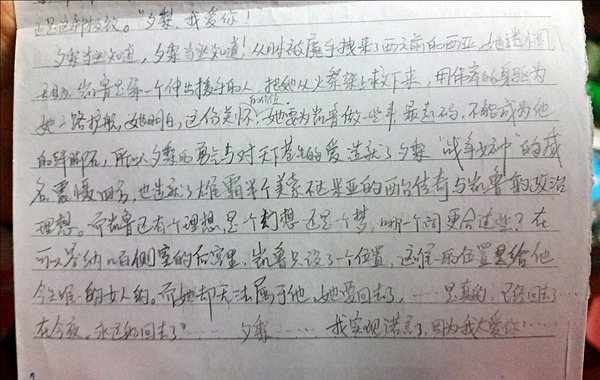 还是这那按纹。“夕梨，我爱你！”
夕梨当然知道，夕梨当然知道！从水被魔手拽来了西元前的西亚，她遇惘
无助，凯鲁是第一个伸出援手的人，把她从火架上救下来，用伟岸的身躯为
她一路护航，她明白，这份关怀的价值。她要为凯鲁做一些事，最起码，不能成为他
的绊脚石，所以夕梨的勇气与对天下苍生的爱，造就了夕梨“战争女神”的威
名震慑四方，也造就了雄霸半个美索不达米亚的西台传奇与凯鲁的政治
理想。而凯鲁还有个理想，是个幻想，还是个梦，哪一个词更合适些？在
可以容纳几百侧室的后宫里，凯鲁只设了一个位置，这唯一的位置是给他
今生唯一的女人的。而她却无法属于他。她要回去了，……是真的，已经回去了……
在今夜。永远的回去了？……夕梨……我实现诺言了，因为我太爱你……